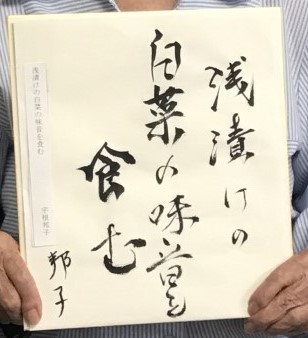 浅漬けの
白菜の味
食む
邦子
浅漬けの白菜の味 を食む
邦子